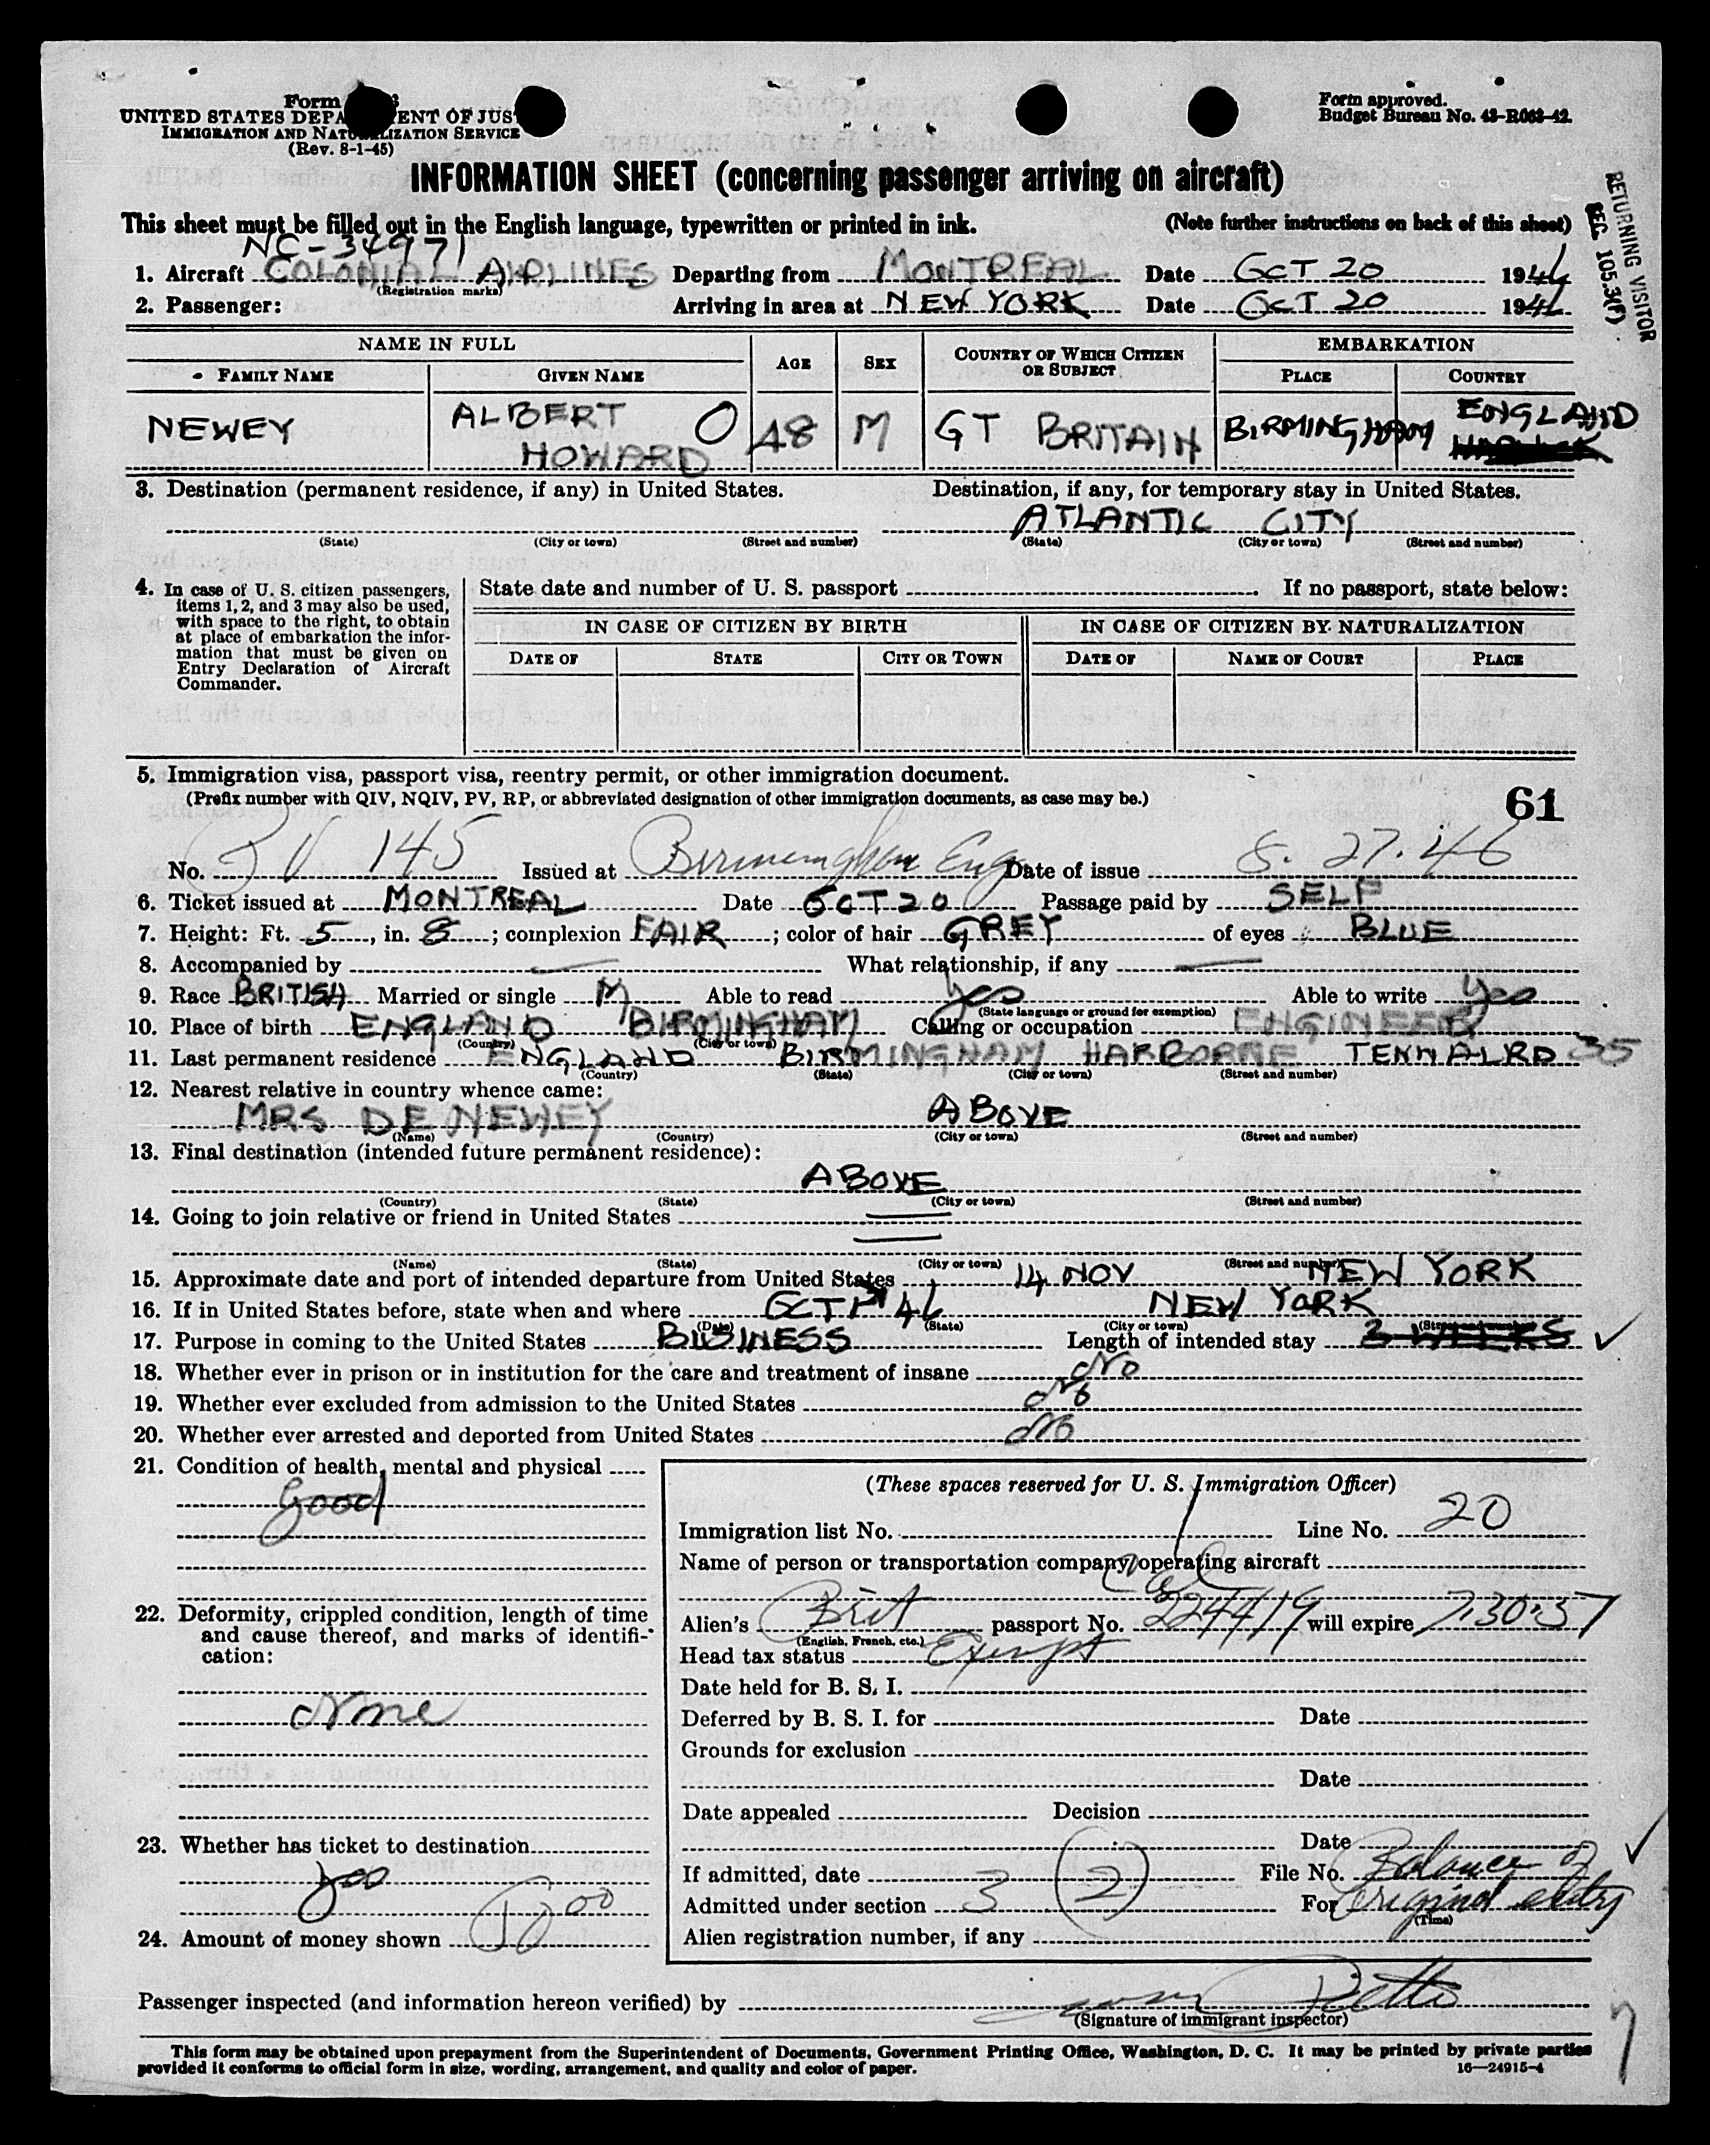 Form
UNITED STATES DEPA ENT OF JUS
IMMIGRATION AND NAT LIZATION SERVICE
(Rev. 8-1-45)
Form approved.
Budget Bureau No. 43-R063-42.
INFORMATION SHEET (concerning passenger arriving on aircraft)
RETURNING VISITOR
SEC. 105.3(f)
This sheet must be filled out in the English language, typewritten or printed in ink. (Note further instructions on back of this sheet)
NC-34971
1. Aircraft COLONIAL AIRLINES Departing from MONTREAL Date OCT 20 1946
(Registration marks)
2. Passenger: Arriving in area at NEW YORK Date OCT 20 1946
NAME IN FULL AGE SEX COUNTRY OF WHICH CITIZEN OR SUBJECT EMBARKATION
FAMILY NAME GIVEN NAME PLACE COUNTRY
NEWEY ALBERT HOWARD O 48 M GT BRITAIN BIRMINGHAM ENGLAND
3. Destination (permanent residence, if any) in United States. Destination, if any, for temporary stay in United States.
ATLANTIC CITY
(State) (City or town) (Street and number) (State) (City or town) (Street and number)
4. In case of U. S. citizen passengers, items 1, 2, and 3 may also be used, with space to the right, to obtain at place of embarkation the information that must be given on Entry Declaration of Aircraft Commander.
State date and number of U. S. passport . If no passport, state below:
IN CASE OF CITIZEN BY BIRTH IN CASE OF CITIZEN BY NATURALIZATION
DATE OF STATE CITY OR TOWN DATE OF NAME OF COURT PLACE
5. Immigration visa, passport visa, reentry permit, or other immigration document.
(Prefix number with QIV, NQIV, PV, RP, or abbreviated designation of other immigration documents, as case may be.) 61
No. V 145 Issued at Birmingham Eng Date of issue 8.27.46
6. Ticket issued at MONTREAL Date OCT 20 Passage paid by SELF
7. Height: Ft. 5, in. 8; complexion FAIR; color of hair GREY of eyes BLUE
8. Accompanied by — What relationship, if any —
9. Race BRITISH Married or single M Able to read yes Able to write yes
(State language or ground for exemption)
10. Place of birth ENGLAND BIRMINGHAM Calling or occupation ENGINEER
(Country) (City or town)
11. Last permanent residence ENGLAND BIRMINGHAM HARBORNE TENNAL RD 35
(Country) (State) (City or town) (Street and number)
12. Nearest relative in country whence came:
MRS D E NEWEY ABOVE
(Name) (Country) (City or town) (Street and number)
13. Final destination (intended future permanent residence):
ABOVE
(Country) (State) (City or town) (Street and number)
14. Going to join relative or friend in United States
(Name) (State) (City or town) (Street and number)
15. Approximate date and port of intended departure from United States 14 NOV NEW YORK
16. If in United States before, state when and where OCT 46 NEW YORK
(Date) (State) (City or town)
17. Purpose in coming to the United States BUSINESS Length of intended stay 3 WEEKS
18. Whether ever in prison or in institution for the care and treatment of insane No
19. Whether ever excluded from admission to the United States No
20. Whether ever arrested and deported from United States No
21. Condition of health, mental and physical
Good
22. Deformity, crippled condition, length of time and cause thereof, and marks of identification:
None
23. Whether has ticket to destination
yes
24. Amount of money shown
(These spaces reserved for U. S. Immigration Officer)
Immigration list No. Line No. 20
Name of person or transportation company operating aircraft
Cal
Alien's Brit passport No. 224419 will expire 7.30.57
(English, French, etc.)
Head tax status Exempt
Date held for B. S. I.
Deferred by B. S. I. for Date
Grounds for exclusion
Date
Date appealed Decision
Date
If admitted, date File No. Balance of
Admitted under section 3 (2) For original entry
(Time)
Alien registration number, if any
Passenger inspected (and information hereon verified) by
(Signature of immigrant inspector)
This form may be obtained upon prepayment from the Superintendent of Documents, Government Printing Office, Washington, D. C. It may be printed by private parties
provided it conforms to official form in size, wording, arrangement, and quality and color of paper. 16—24915-4
7